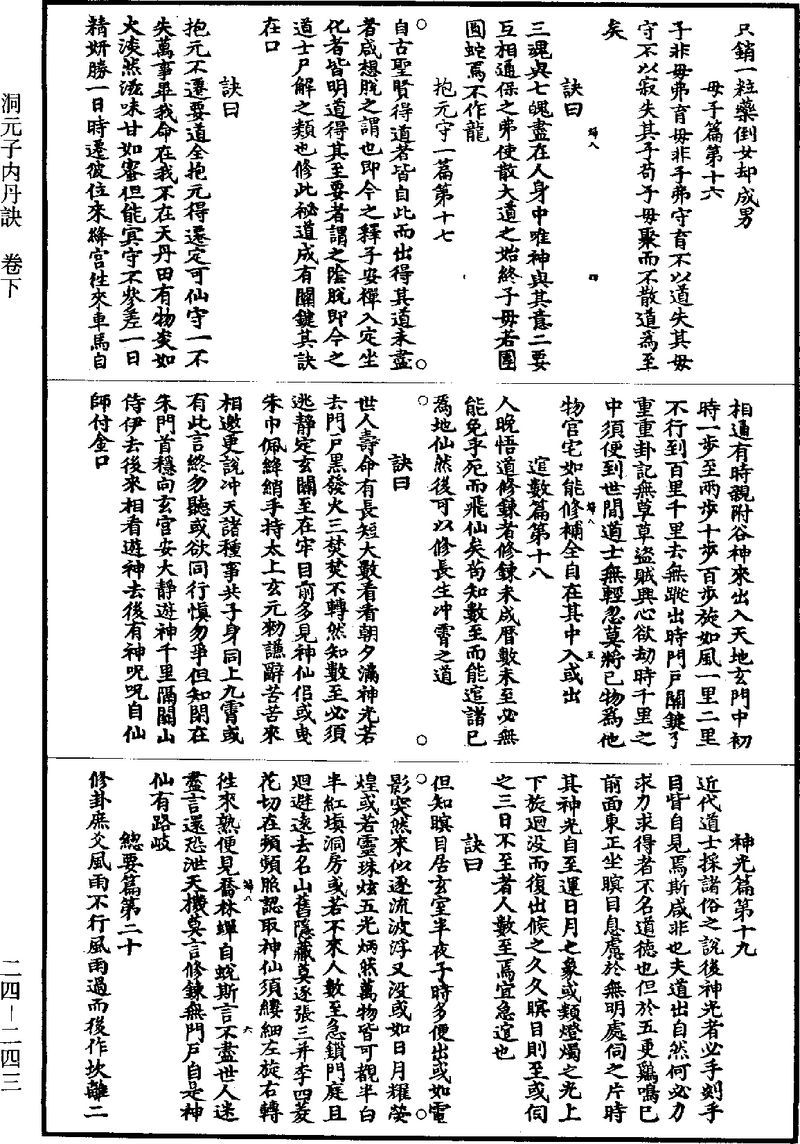 只銷一粒藥倒女却成男
母子篇第十六
子非母弗育母非子弗守育不以道失其母
守不以寂失其子苟子母聚而不散道爲至
矣
訣曰
三魂與七魄盡在人身中唯神與其意二要
互相通保之弗使散大道之始終子母若團
圓蛇焉不作龍
抱元守一篇第十七
自古聖賢得道者皆自此而出得其道未盡
者咸想脫之謂也即今之釋子安禪入定坐
化者皆明道得其至要者謂之陰脫即今之
道士尸解之類也修此祕道成有關鍵其訣
在口
訣曰
抱元不遷要道全抱元得還定可仙守一不
失萬事畢我命在我不在天丹田有物炎如
火淡然滋味甘如蜜但能冥守不參差一日
精妍勝一日時遷彼位來絳宮徃來車馬自
相通有時親附谷神來出入天地玄門中初
時一步至兩步十步百步旋如風一里二里
不行到百里千里去無蹤出時門戶關鍵了
重重卦記無草草盜賊興心欲劫時千里之
中須便到世間道士無輕忽莫將已物爲他
物官宅如能修補全自在其中入或出
逭數篇第十八
人晚悟道修鍊者修鍊未成曆數未至必無
能免乎死而飛仙矣苟知數至而能逭諸已
爲地仙然後可以修長生冲霄之道
訣曰
世人壽命有長短大數看看朝夕滿神光若
去門戶黑發火三焚焚不轉然知數至必須
逃靜定玄關至在牢目前多見神仙侣或曳
朱巾佩絳綃手持太上玄元勑謙辭苦苦來
相邀更說冲天諸種事共子身同上九霄或
有此言終勿聽或欲同行愼勿爭但知閉在
朱門首穩向玄宮安大靜遊神千里隔關山
侍伊去後來相看遊神去後有神呪呪自仙
師付金口
神光篇第十九
近代道士採諸俗之說後神光者必手刻手
目皆自見焉斯咸非也夫道出自然何必力
求力求得者不名道德也但於五更鷄鳴已
前面東正坐瞑目息慮於無明處伺之片時
其神光自至運日月之象或類燈燭之光上
下旋迴没而復出候之久久瞑目則至或伺
之三日不至者人數至焉宜急逭也
訣曰
但知瞑目居玄室半夜子時多便出或如電
影突然來似逐流波浮又没或如日月耀熒
煌或若靈珠炫五光炳然萬物皆可覩半白
半紅塡洞房或若不來人數至急鎖門庭且
迴避遠去名山舊隱藏莫逐張三并李四菱
花切在頻頻照認取神仙須縷細左旋右轉
徃來熟便見喬林蟬自蛻斯言不盡世人迷
盡言還恐泄天機莫言修鍊無門戶自是神
仙有路岐
總要篇第二十
修卦庶爻風雨不行風雨過而後作坎離二
洞元子内丹訣　卷下
二四—二四三